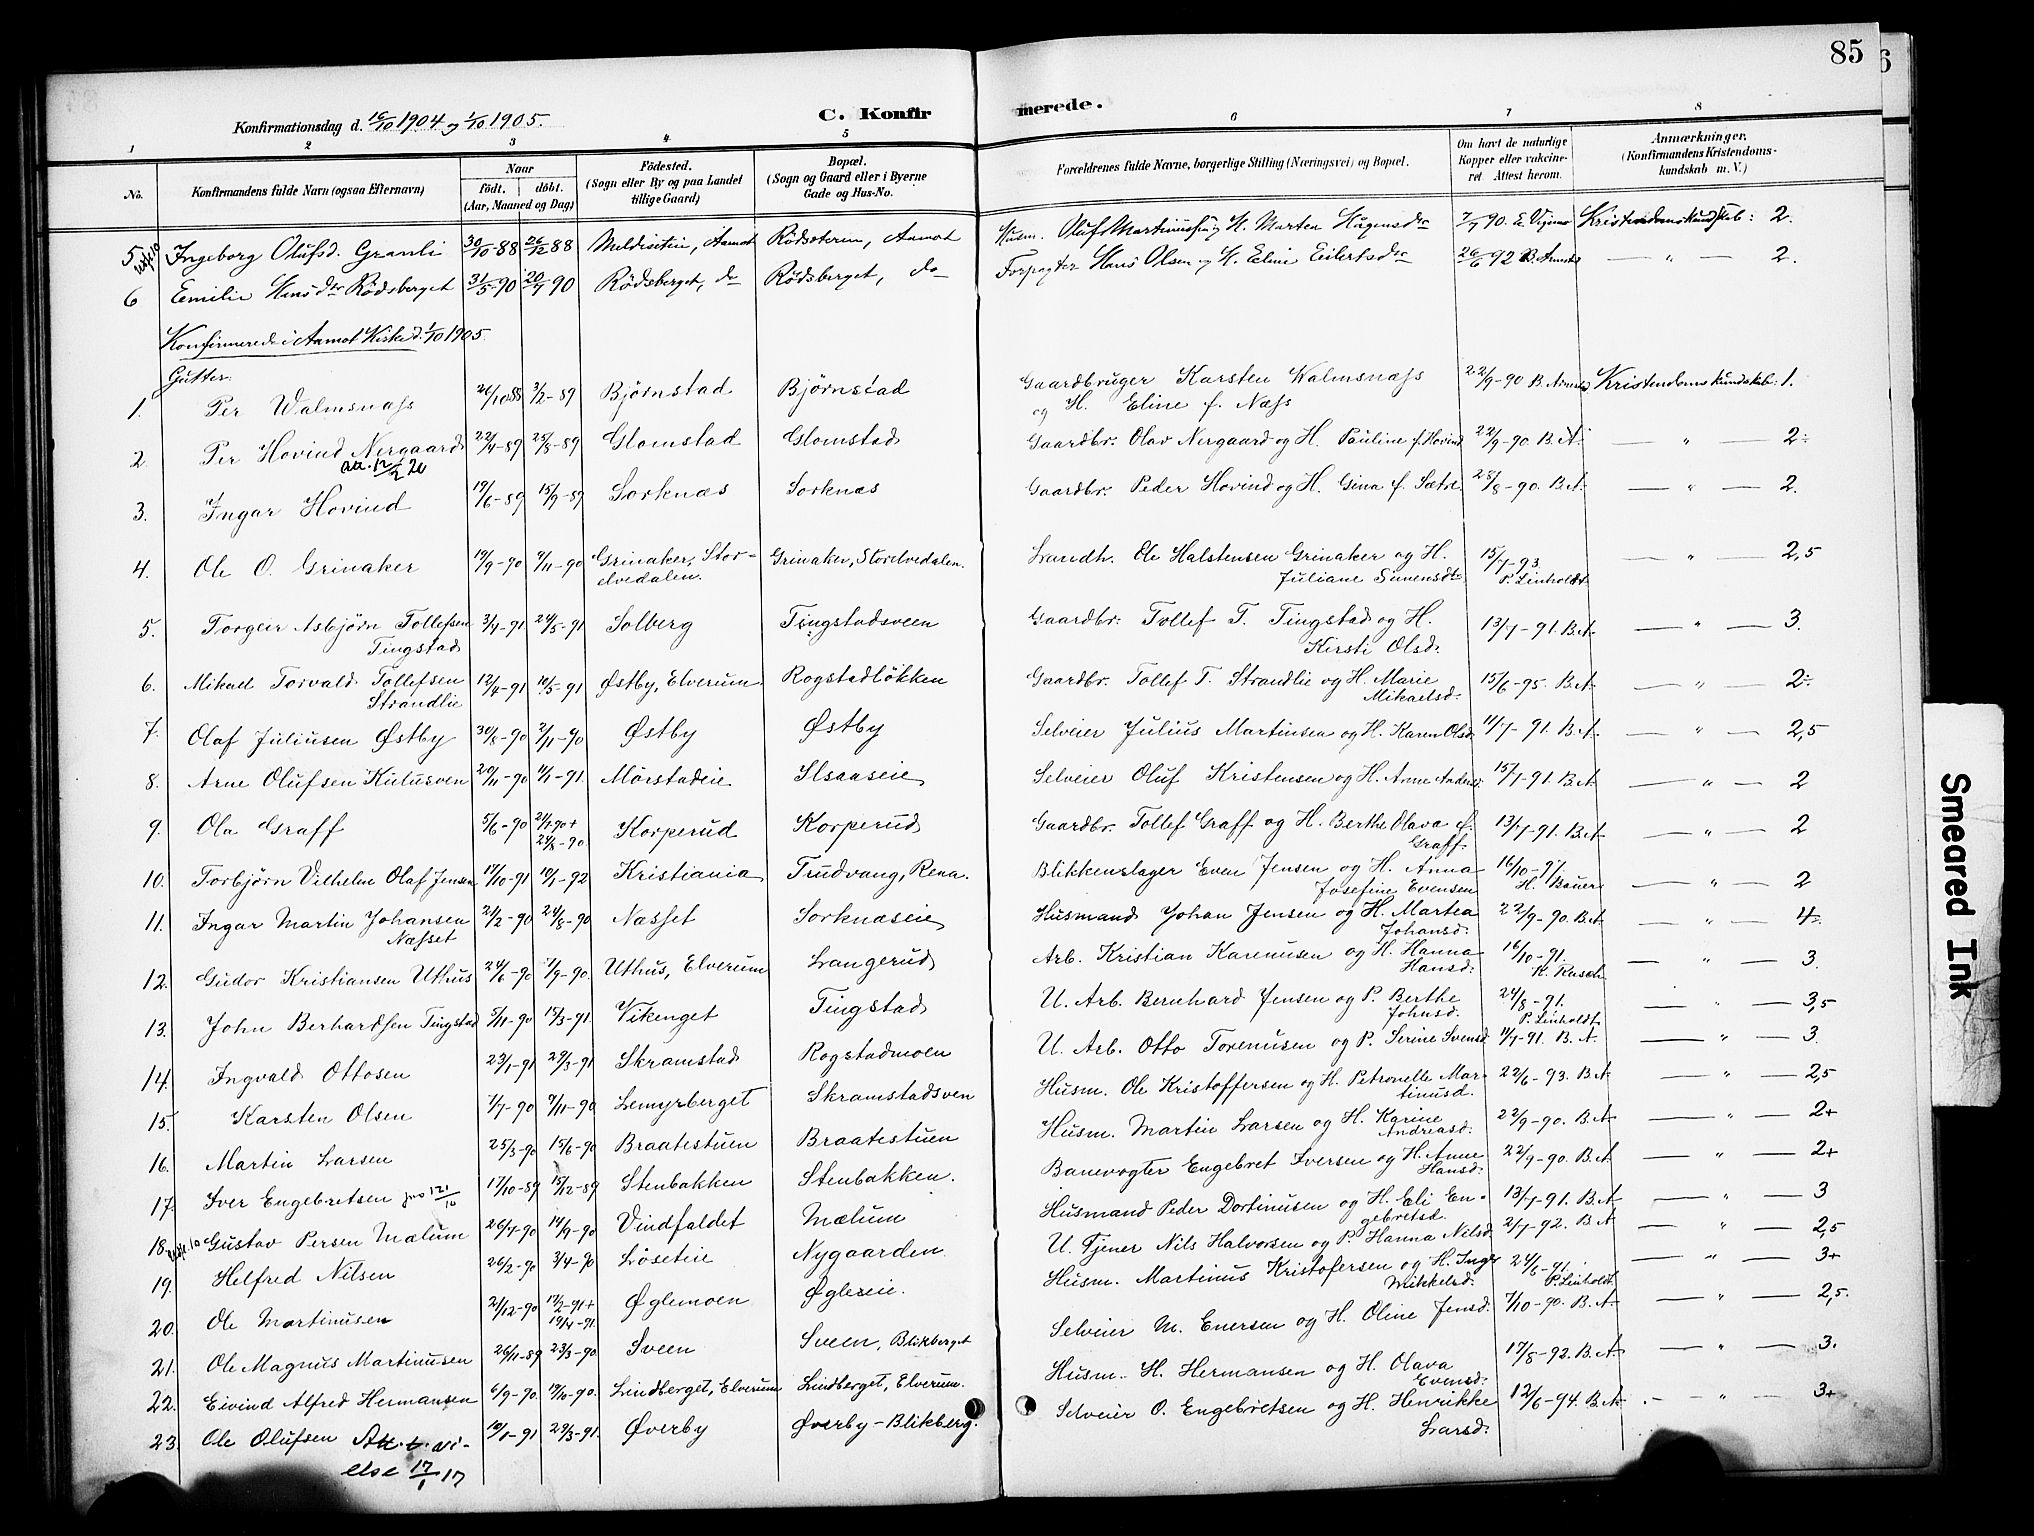 85
Konfirmationsdag d. 16/10 1904 og 1/10 1905.
C. Konfirmerede.
1 2 3 4 5 6 7 8
No. Konfirmandens fulde Navn (ogsaa Efternavn) Naar födt. döbt. (Aar, Maaned og Dag) Födested. (Sogn eller By og paa Landet tillige Gaard) Bopæl. (Sogn og Gaard eller i Byerne Gade og Hus-No. Forældrenes fulde Navne, borgerlige Stilling (Næringsvei) og Bopæl. Om havt de naturlige Kopper eller vakcineret Attest herom. Anmærkninger. (Konfirmandens Kristendomskundskab m. V.)
5 Ingeborg Olufsd. Granli 30/10-88 26/12 88 Meldiseteie, Aamot Rödsteren, Aamot Husm. Oluf Martinussen og H. Marten Hågensdr 7/7 90. Kristendomskundskab: 2.
6 Emilie Hansdr Rödsberget 31/5-90 20/7 90 Rödsberget, do Rödsberget, do Forpagter Hans Olsen og H. Elini Eilertsdr 26/6 92 — " — 2.
Konfirmerede i Aamot Kirke d. 1/10 1905.
Gutter.
1. Per Walmsnæss 26/10 88 3/2-89 Björnstad Björnstad Gaardbruger Karsten Walmsnæss 22/9-90 B. Kristendomskundskab: 1.
og H. Eline f. Næss
2 Per Hovind Nergaard 22/4-89 25/8-89 Glomstad Glomstad Gaardbr. Olav Nergaard og H. Pauline f. Hovind 22/9-90 B.A. — " — 2÷
att. 12/2 20
3. Ingar Hovind 19/6-89 15/9-89 Sorknæs Sorknæs Gaardbr. Peder Hovind og H. Gina f. Sætre 28/8-90. B.A. — " — 2.
4. Ole O. Grinaker 19/9-90 9/11-90 Grinaker, Storelvedalen. Grinaker, Storelvedalen. Landh. Ole Halstensen Grinaker og H. 15/7-93. — " — 2,5
Juliane Simensdtr P. Linholdt
5. Torgeir Asbjörn Tollefsen 3/4-91 24/5-91 Solberg Tingstadsveen Gaardbr. Tollef T. Tingstad og H. 13/7-91. B.A. — " — 3.
Tingstad Kirsti Olsd.
6. Mikael Torvald Tollefsen 12/4-91 10/5-91 Østby, Elverum Rogstadlökken Gaardbr. Tollef T. Strandlie og H. Marie 15/6-95. B.A. — " — 2÷
Strandlie Mikaelsd.
7. Olaf Juliusen Østby 30/8-90 2/11-90 Østby Østby Selveier Julius Martinsen og H. Karen Olsd. 11/7-91. B.A. — " — 2,5
8. Arne Olufsen Kiulusven 20/11-90 11/1-91. Mörstadeie Ilsaaseie Selveier Oluf Kristensen og H. Anne Andersd. 15/7-91. B.A. — " — 2
9. Ola Graff 5/6-90 2/7 90 + 24/8-90. Korperud Korperud Gaardbr. Tollef Graff og H. Berthe Olava f. 13/7-91. B.A. — " — 2
Graff.
10. Torbjörn Vilhelm Olaf Jensen 17/10-91 10/1-92 Kristiania Trudvang, Rena. Blikkenslager Even Jensen og H. Anna 16/10-91 — " — 2
Josefine Evensen H. Bauer
11. Ingar Martin Johansen 21/2-90 24/8-90 Næsset Sorknæseie Husmand Johan Jensen og H. Martea 22/9-90. B.A. — " — 4÷
Næsset Johansd.
12. Gudor Kristiansen Uthus 24/6-90 7/9-90. Uthus, Elverum Langerud Arb. Kristian Karenusen og H. Hanna 16/10-91. — " — 3.
Hansd. K. Rasch
13. John Berhardsen Tingstad 5/11-90 15/3-91. Vikenget Tingstad U. Arb. Bernhard Jensen og P. Berthe 24/8-91. — " — 3,5
Johnsd. P. Linholdt
14. Ingvald Ottosen 23/1-91 29/3-91 Skramstad Rogstadmoen U. Arb. Otto Torenusen og P. Serine Svensd. 11/7-91. B.A. — " — 3.
15. Karsten Olsen 7/7-90 9/11-90 Lemyrberget Skramstadsven Husm. Ole Kristoffersen og H. Petronelle Mar- 22/6-93. B.A. — " — 2,5
tinusd.
16. Martin Larsen 25/3-90 15/6-90 Braatestuen Braatestuen Husm. Martin Larsen og H. Karine 22/9-90. B.A. — " — 2+
Andreasd.
17. Iver Engebretsen 17/10-89 15/12-89 Stenbakken Stenbakken. Banevogter Engebret Iversen og H. Anne 22/9-90. B.A. — " — 2+
Hansd.
18. Gustav Persen Mælum 26/7-90 14/9-90 Vindfaldet Mælum Husmand Peder Dortinusen og H. Eli En- 13/7-91. B.A. — " — 3
gebretsd.
19. Helfred Nilsen 26/2-90 3/4-90 Löseteie Nygaarden U. Tjener Nils Halvorsen og P. Hanna Nilsd. 2/7-92. B.A. — " — 2,5
20. Ole Martinusen 21/12-90 17/2-91+ 19/4-91. Øglemoen Øglereie. Husm. Martinus Kristofersen og H. Inger 24/6-91. — " — 3+
Mikkelsd. P. Linholdt
21. Ole Magnus Martinusen 26/11-89 23/3-90 Sveen Sveen, Blikberget Selveier M. Enersen og H. Oline Jensd. 7/10-90. B.A. — " — 2,5.
22. Eivind Alfred Hermansen 6/9-90. 19/10-90. Lindberget, Elverum Lindberget, Elverum. Husm. H. Hermansen og H. Olava 17/8-92. B.A. — " — 3.
Evensd.
23. Ole Olufsen 10/1-91 29/3-91. Øverby Øverby-Blikberg. Selveier O. Engebretsen og H. Henrikke 12/6-94. B.A. — " — 3+
Att. t. vi-
else 17/1 17 Larsd.
Smeared Ink